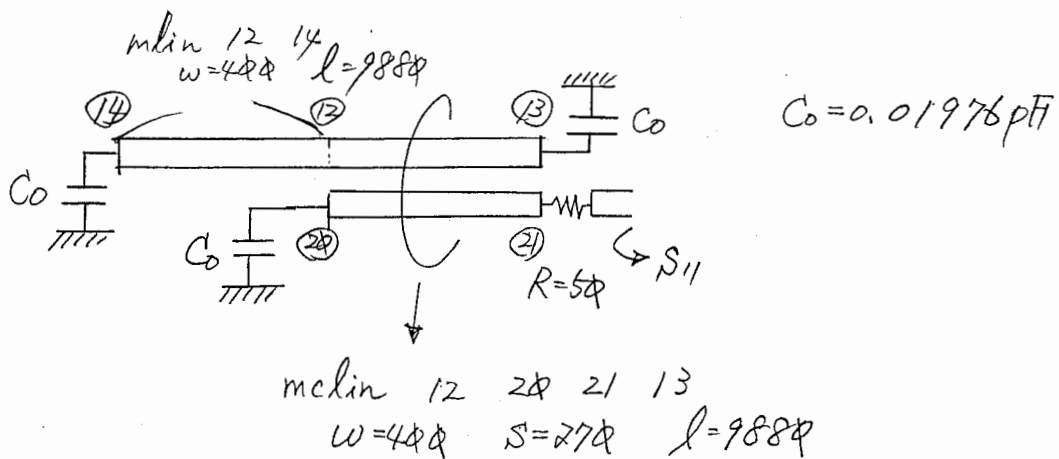 mlin 12 14
w=400 l=9880
14
12
13
Co
Co=0.01976pF
Co
Co
20
21
S11
R=50
mclin 12 20 21 13
w=400 S=270 l=9880